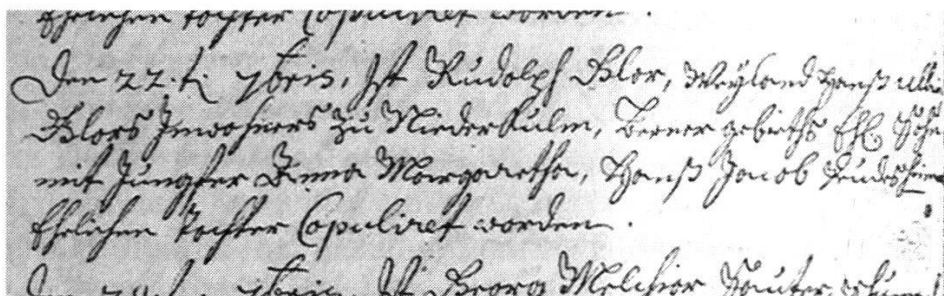 Ehelichen tochter Copuliret worden.
Den 22.t. 7bris, Ist Rudolph Blor, Weyland Hanß Ulli
Blors Inwohners zu Niederkulm, Berner gebieths Ehl. Sohn
mit Jungfer Anna Margaretha, Hanß Jacob
Ehelichen tochter Copuliret worden.
7bris, Ist Georg Melchior Sauter